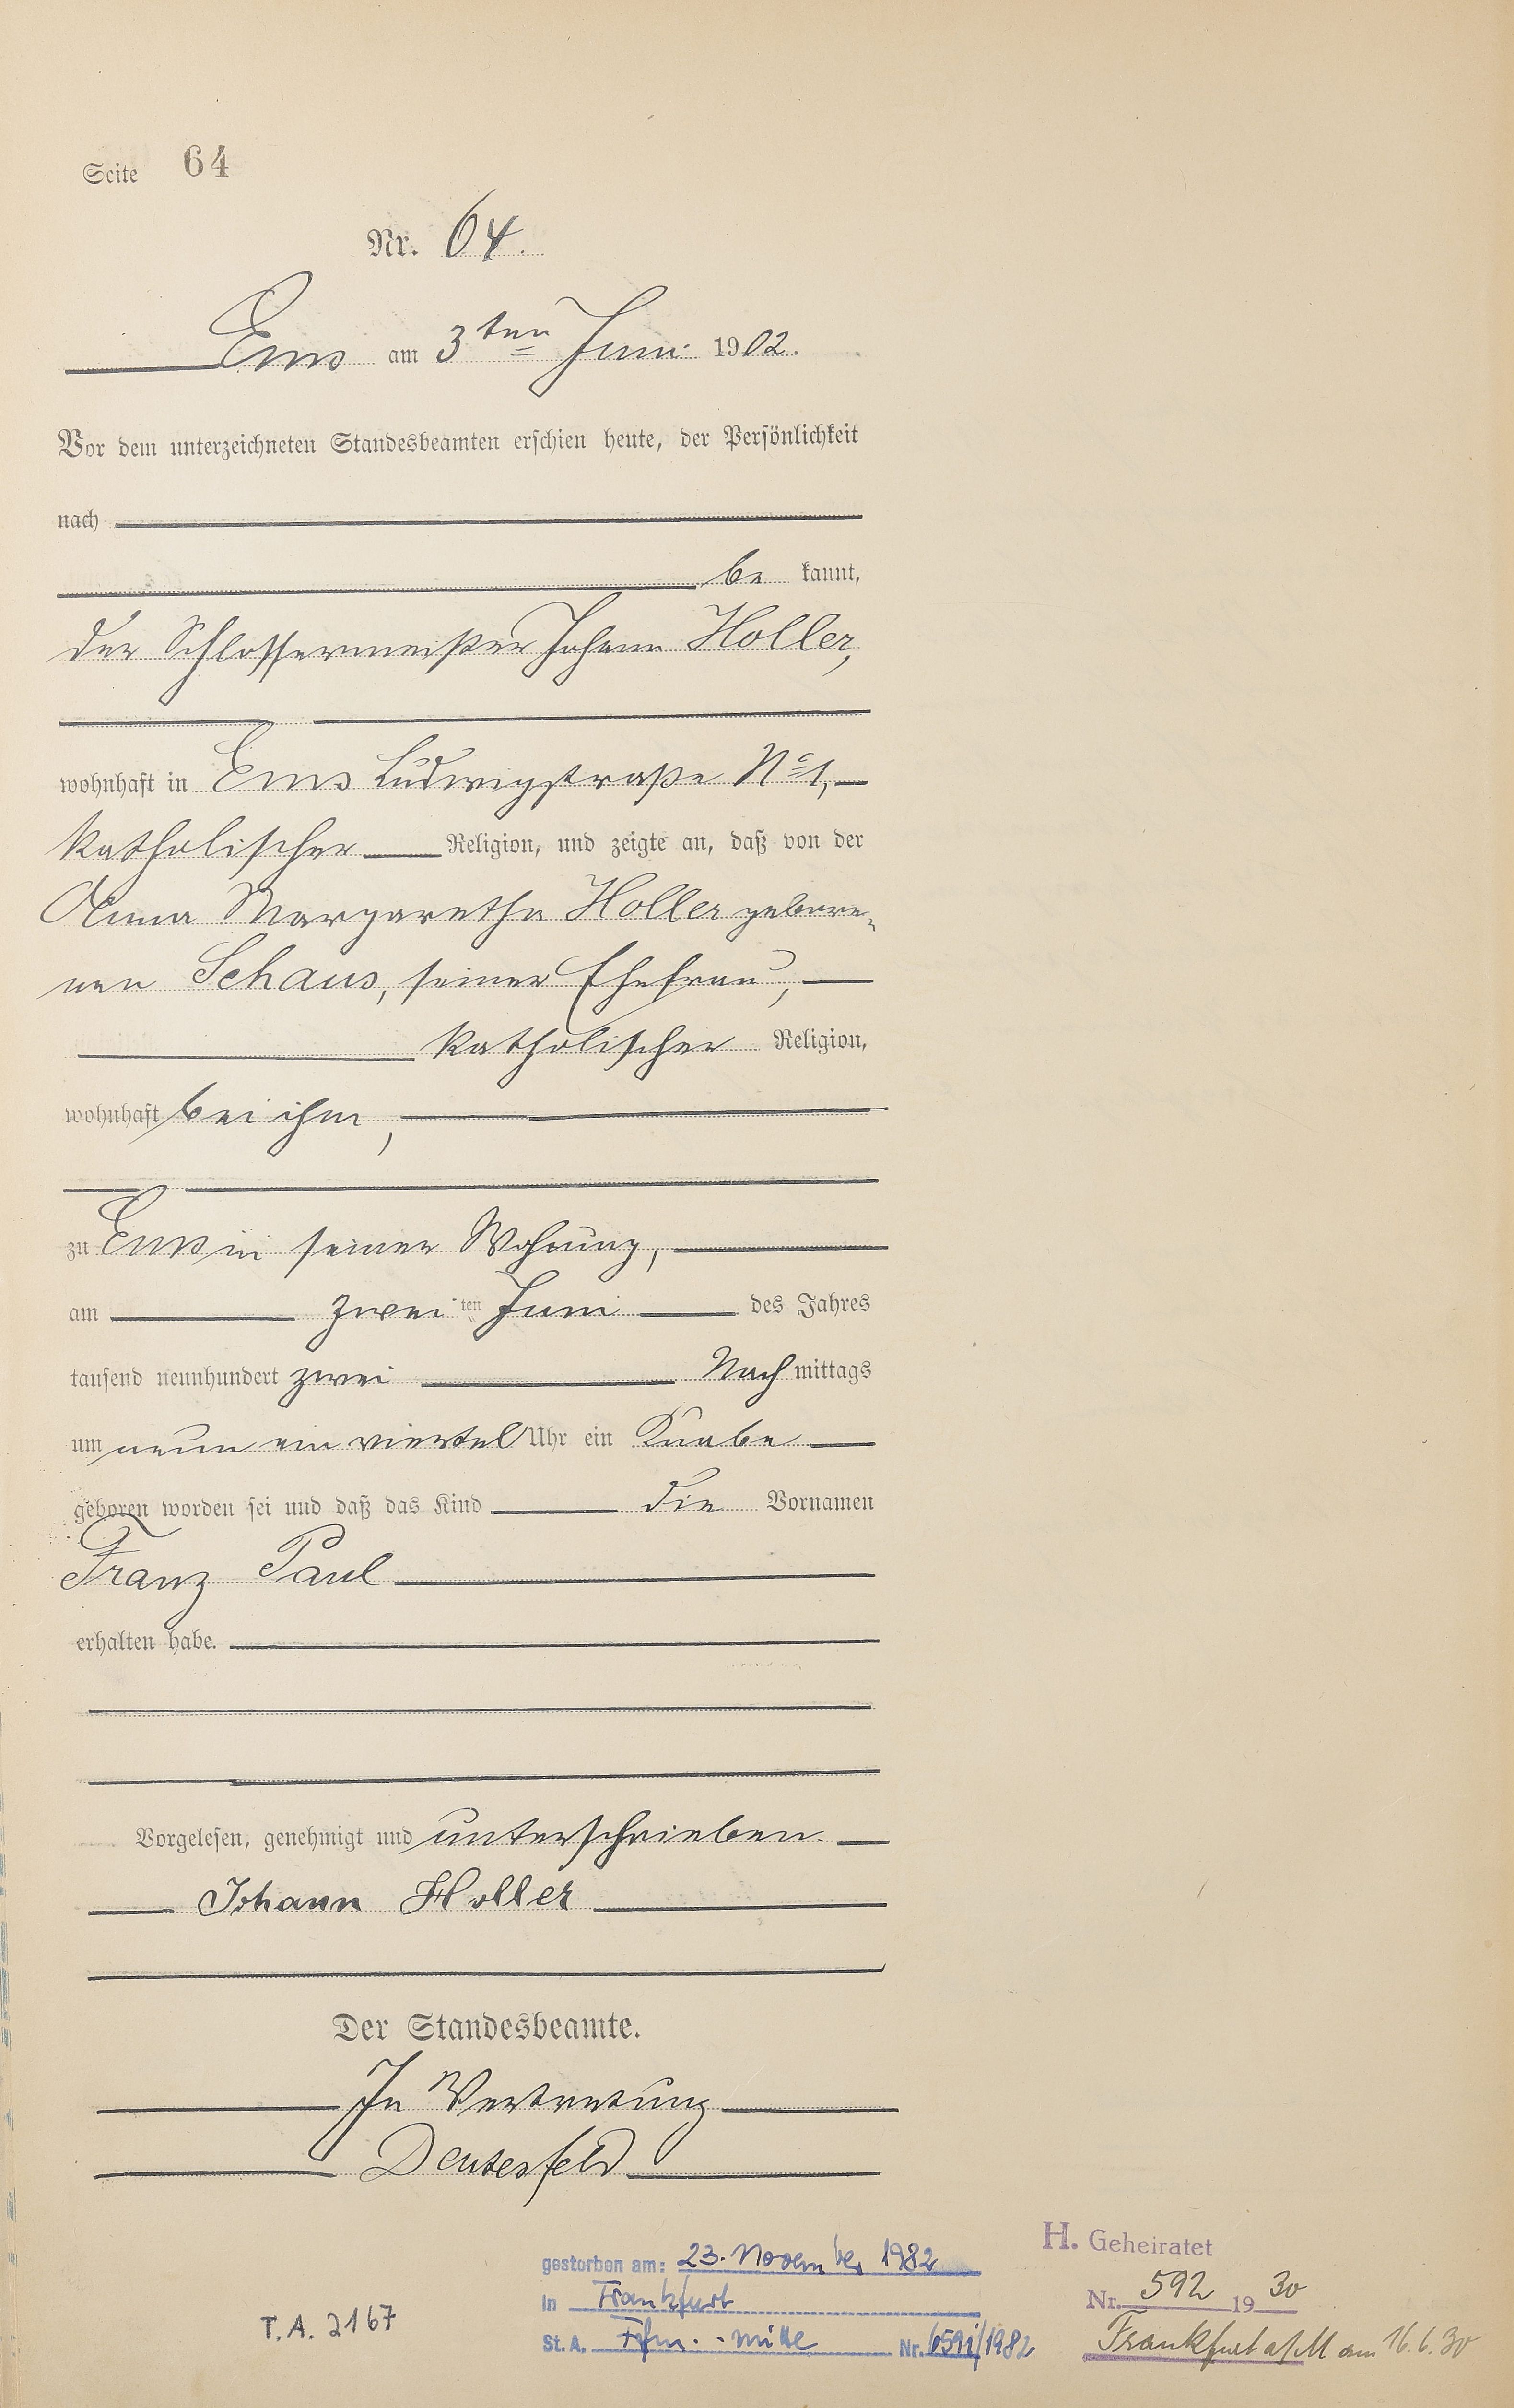 Seite 64
Nr. 64.
Ems am 3ten Juni 1902.
Vor dem unterzeichneten Standesbeamten erschien heute, der Persönlichkeit
nach
be kannt,
der Schlossermeister Johann Holler,
wohnhaft in Ems Ludwigstraße No 1,
katholischer Religion, und zeigte an, daß von der
Anna Margaretha Holler gebore-
nen Schaus, seiner Ehefrau,
katholischer Religion,
wohnhaft bei ihm,
zu Ems in seiner Wohnung,
am zwei ten Juni des Jahres
tausend neunhundert zwei Nach mittags
um neun ein viertel Uhr ein Knabe
geboren worden sei und daß das Kind die Vornamen
Franz Paul
erhalten habe.
Vorgelesen, genehmigt und unterschrieben.
Johann Holler
Der Standesbeamte.
In Vertretung
Deusesfeld
T. A. 2167
gestorben am: 23. November 1982
in Frankfurt
St. A. Ffm. - mitte Nr. 6591/1982
H. Geheiratet
Nr. 592 19 30
Frankfurt a/M am 16.6.30